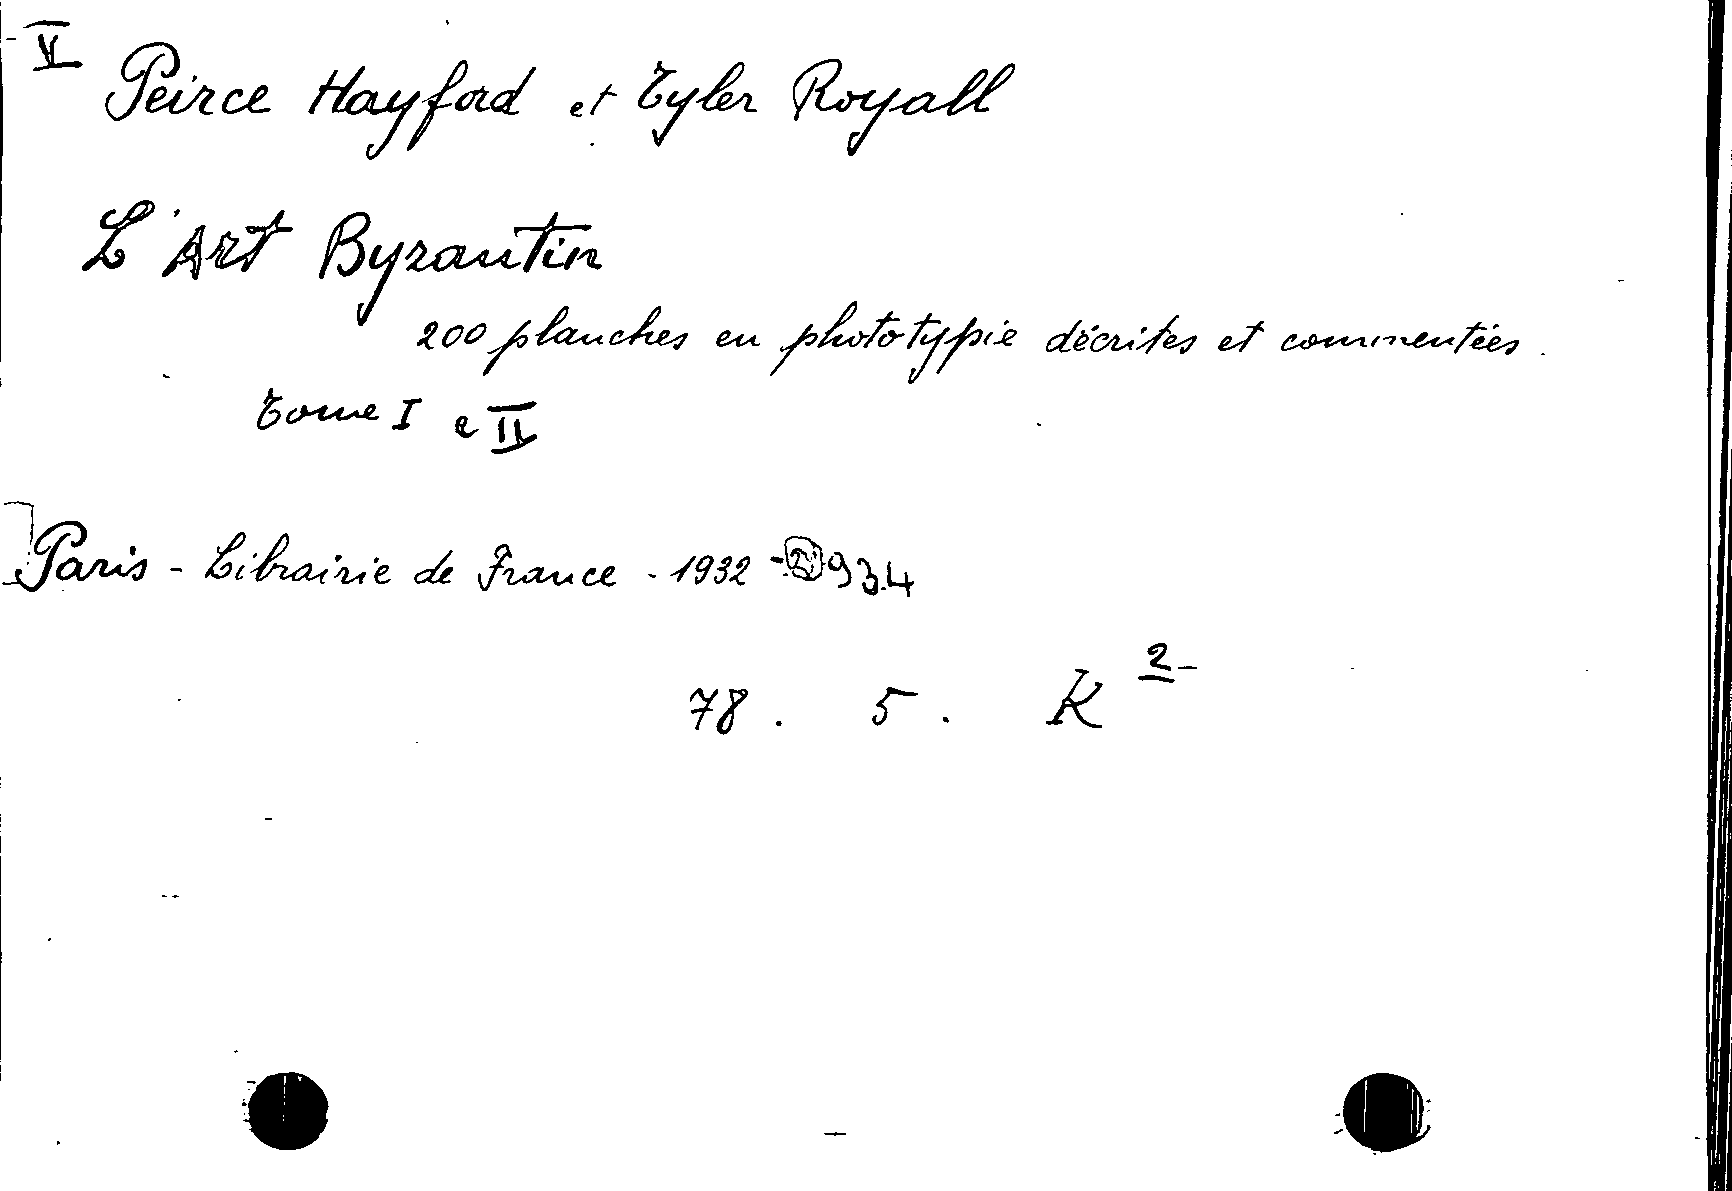 V
Peirce Hayford et Tyler Royall
L'Art Byzantin
200 planches en phototypie décrites et commentées.
Tome I e II
Paris - Librairie de France - 1932 - 934
78. 5. K 2